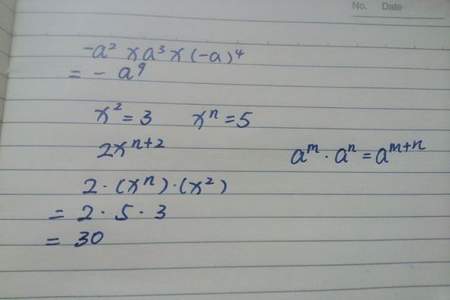 No. Date
-a² × a³ × (-a)⁴
= - a⁹
x² = 3 xⁿ = 5
2xⁿ⁺²
aᵐ · aⁿ = aᵐ⁺ⁿ
2 · (xⁿ) · (x²)
= 2 · 5 · 3
= 30